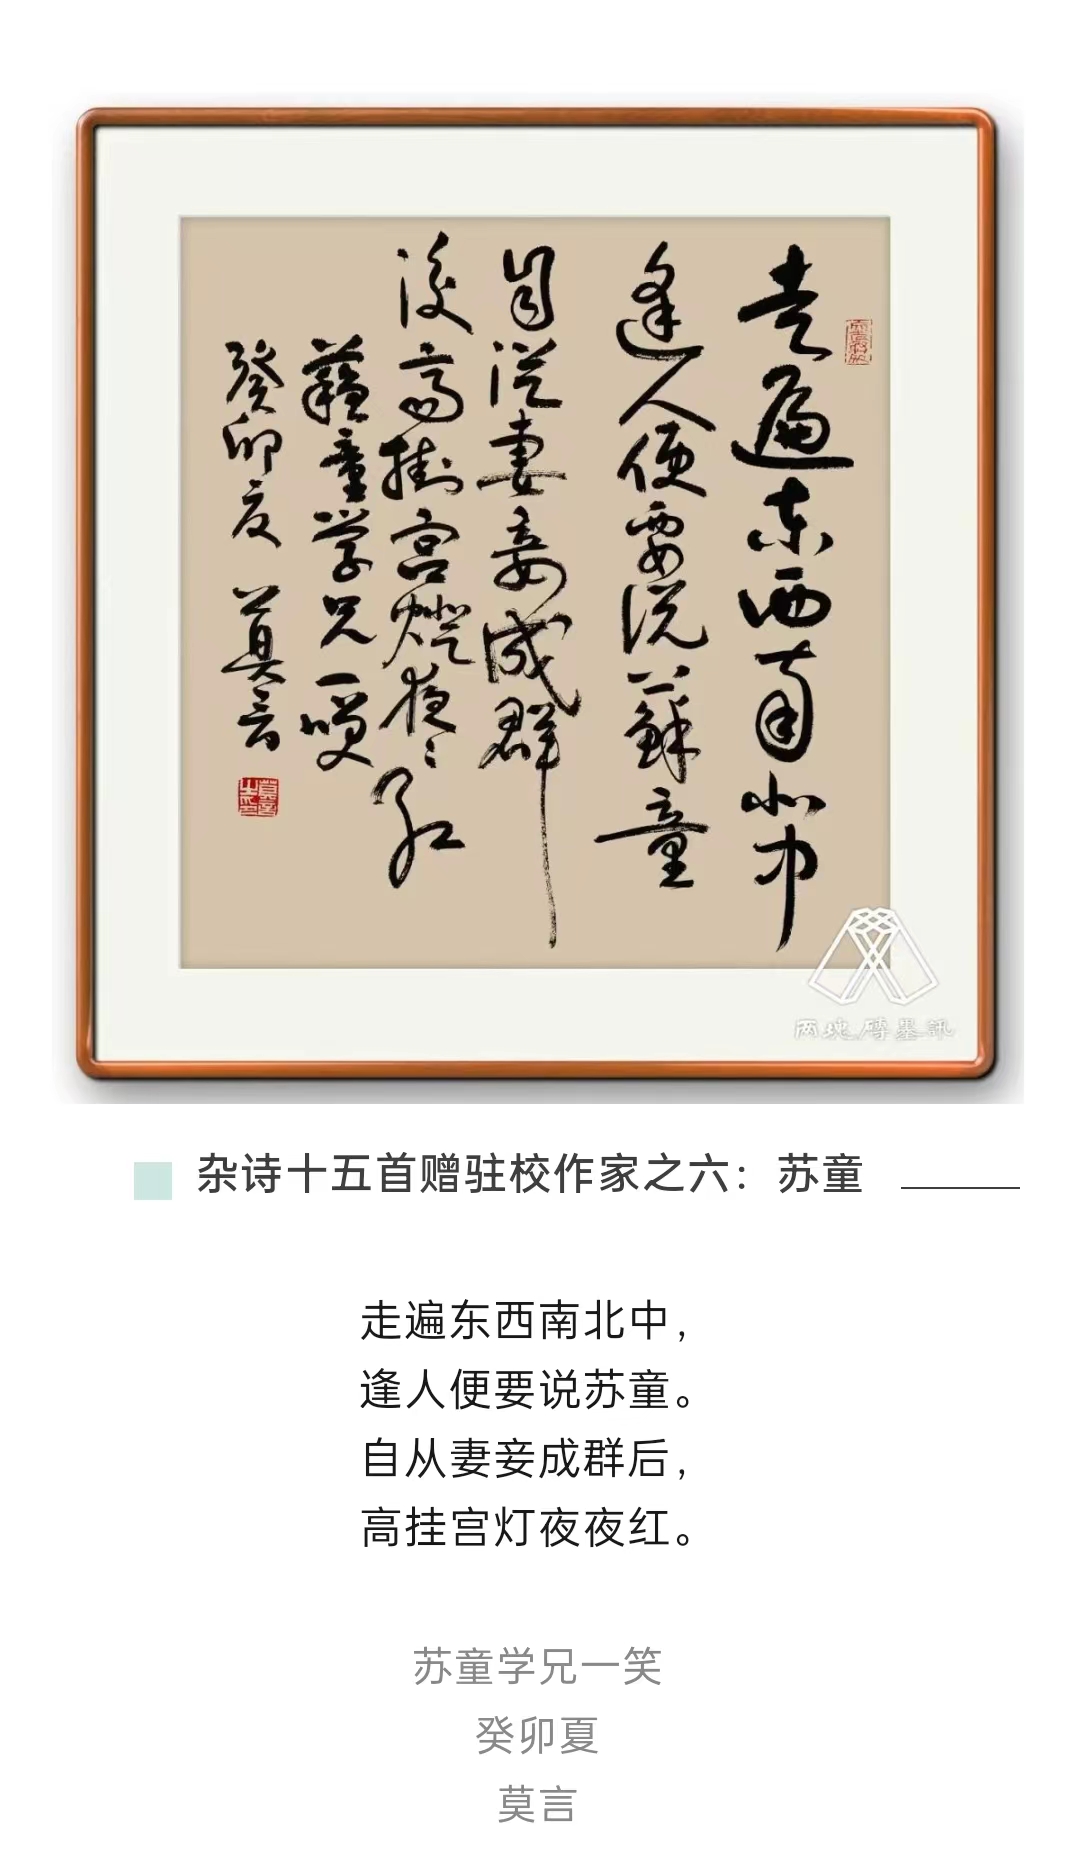 走遍东西南北中
逢人便要说蘇童
自従妻妾成群
後高掛宫燈夜々红
蘓童学兄一咲
癸卯夏 莫言
莫言之印
两块砖墨訊
杂诗十五首赠驻校作家之六：苏童
走遍东西南北中，
逢人便要说苏童。
自从妻妾成群后，
高挂宫灯夜夜红。
苏童学兄一笑
癸卯夏
莫言